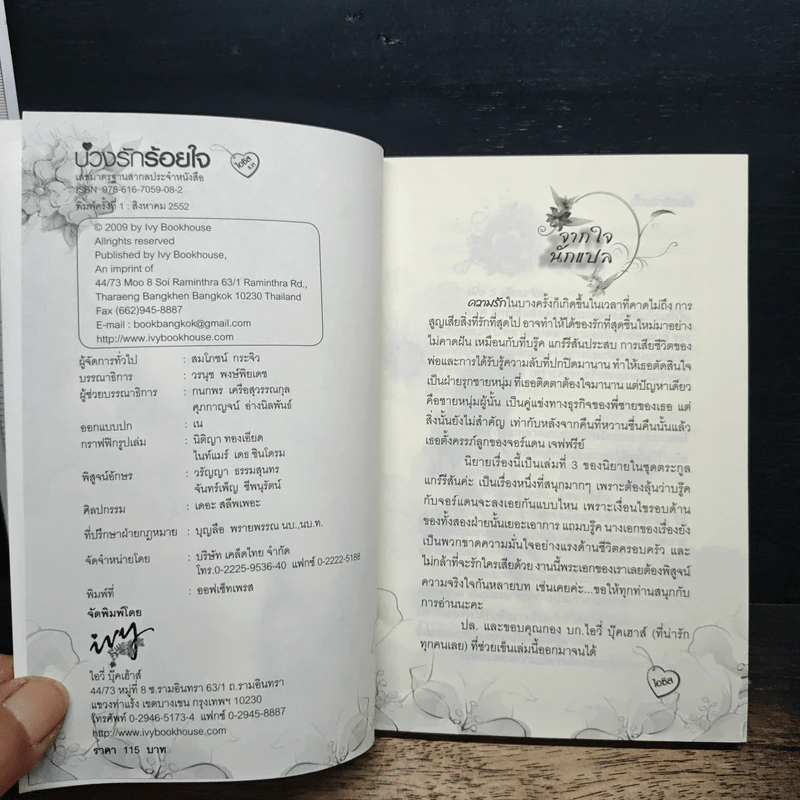 บ่วงรักร้อยใจ
ไอซิส
แปล
เลขมาตรฐานสากลประจำหนังสือ
ISBN 978-616-7059-08-2
พิมพ์ครั้งที่ 1 : สิงหาคม 2552
© 2009 by Ivy Bookhouse
Allrights reserved
Published by Ivy Bookhouse,
An imprint of
44/73 Moo 8 Soi Ramintra 63/1 Ramintra Rd.,
Tharaeng Bangkhen Bangkok 10230 Thailand
Fax (662)945-8887
E-mail : bookbangkok@gmail.com
http://www.ivybookhouse.com
ผู้จัดการทั่วไป : สมโภชน์ กระจิว
บรรณาธิการ : วรนุช พงษ์พิยเดช
ผู้ช่วยบรรณาธิการ : กนกพร เครือสุวรรณกุล
ศุภกาญจน์ อ่างนิลพันธ์
ออกแบบปก : เน
กราฟฟิกรูปเล่ม : นิติญา ทองเอียด
ไนท์แมร์ เดธ ซินโดรม
พิสูจน์อักษร : วรัญญา ธรรมสุนทร
จันทร์เพ็ญ ชีพนุรัตน์
ศิลปกรรม : เดอะ สลีพเพอะ
ที่ปรึกษาฝ่ายกฎหมาย : บุญลือ พรายพรรณ นบ.,นบ.ท.
จัดจำหน่ายโดย : บริษัท เคล็ดไทย จำกัด
โทร.0-2225-9536-40 แฟกซ์ 0-2222-5188
พิมพ์ที่ : ออฟเซ็ทเพรส
จัดพิมพ์โดย
ivy
ไอวี่ บุ๊คเฮ้าส์
44/73 หมู่ที่ 8 ซ.รามอินทรา 63/1 ถ.รามอินทรา
แขวงท่าแร้ง เขตบางเขน กรุงเทพฯ 10230
โทรศัพท์ 0-2946-5173-4 แฟกซ์ 0-2945-8887
http://www.ivybookhouse.com
ราคา 115 บาท
จากใจ
นักแปล
ความรักในบางครั้งก็เกิดขึ้นในเวลาที่คาดไม่ถึง การ
สูญเสียสิ่งที่รักที่สุดไป อาจทำให้ได้ของรักที่สุดชิ้นใหม่มาอย่าง
ไม่คาดฝัน เหมือนกับที่บรู๊ค แกร์รีสันประสบ การเสียชีวิตของ
พ่อและการได้รับรู้ความลับที่ปกปิดมานาน ทำให้เธอตัดสินใจ
เป็นฝ่ายรุกชายหนุ่ม ที่เธอติดตาต้องใจมานาน แต่ปัญหาเดียว
คือชายหนุ่มผู้นั้น เป็นคู่แข่งทางธุรกิจของพี่ชายของเธอ แต่
สิ่งนั้นยังไม่สำคัญ เท่ากับหลังจากคืนที่หวานชื่นคืนนั้นแล้ว
เธอตั้งครรภ์ลูกของจอร์แดน เจฟฟรีย์
นิยายเรื่องนี้เป็นเล่มที่ 3 ของนิยายในชุดตระกูล
แกร์รีสันค่ะ เป็นเรื่องหนึ่งที่สนุกมากๆ เพราะต้องลุ้นว่าบรู๊ค
กับจอร์แดนจะลงเอยกันแบบไหน เพราะเงื่อนไขรอบด้าน
ของทั้งสองฝ่ายนั้นเยอะเอาการ แถมบรู๊ค นางเอกของเรื่องยัง
เป็นพวกขาดความมั่นใจอย่างแรงด้านชีวิตครอบครัว และ
ไม่กล้าที่จะรักใครเสียด้วย งานนี้พระเอกของเราเลยต้องพิสูจน์
ความจริงใจกันหลายบท เช่นเคยค่ะ...ขอให้ทุกท่านสนุกกับ
การอ่านนะคะ
ปล. และขอบคุณกอง บก.ไอวี่ บุ๊คเฮาส์ (ที่น่ารัก
ทุกคนเลย) ที่ช่วยเข็นเล่มนี้ออกมาจนได้
ไอซิส